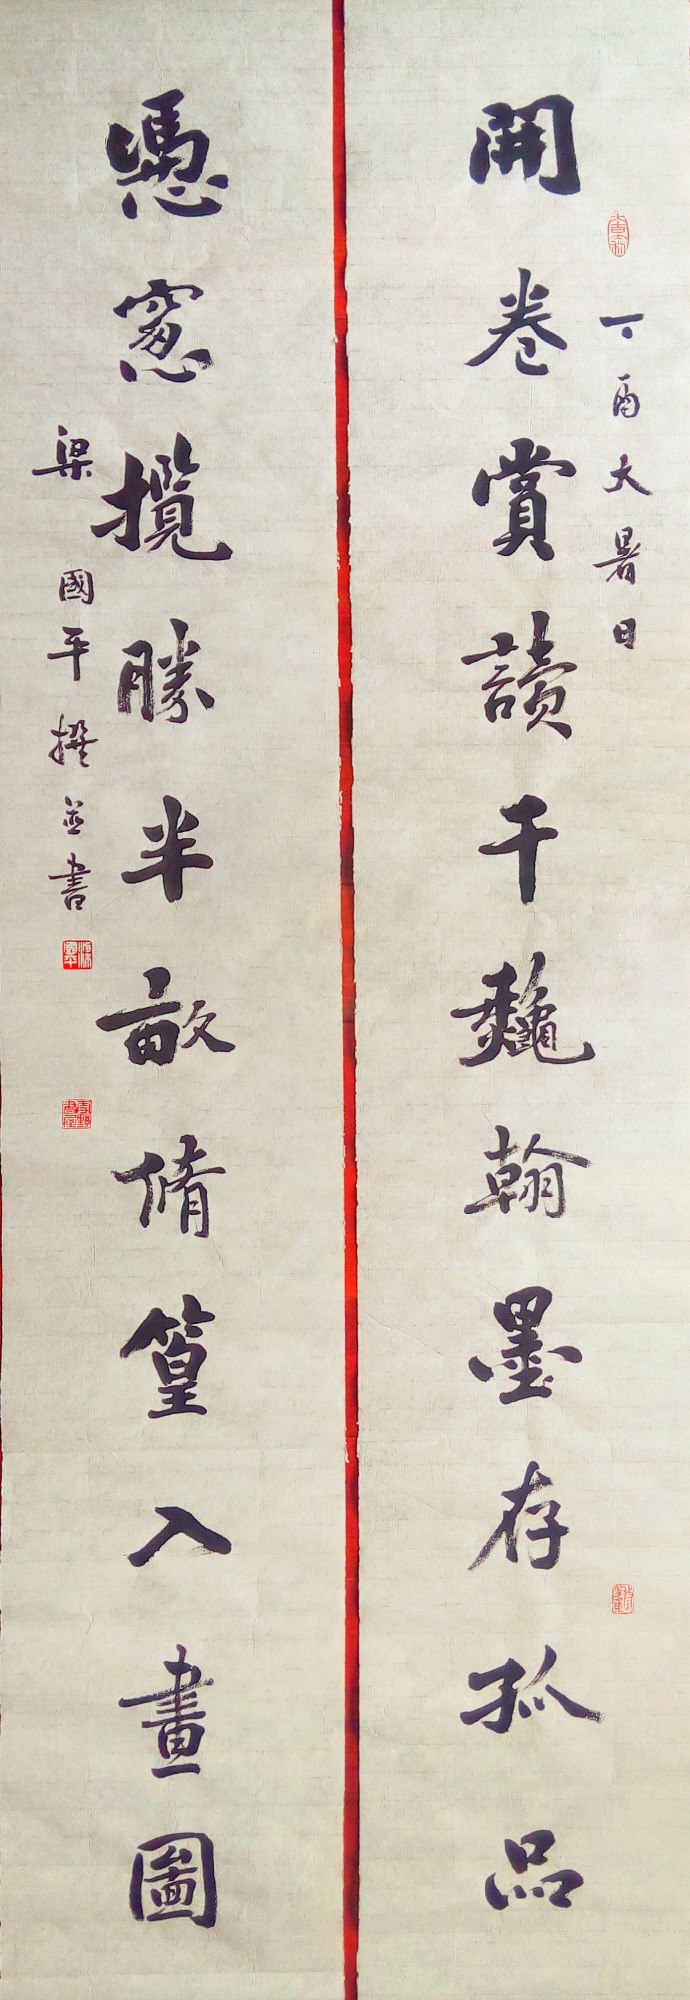 丁酉大暑日
開卷賞讀千龝翰墨存孤品
憑窻攬勝半畝脩篁入畫圖
梁國平撰並書